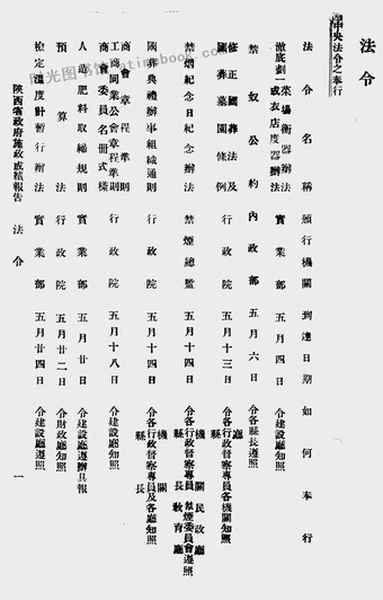 法令
中央法令之奉行
法令名稱　頒行機關　到達日期　如何奉行
徹底劃一菜場衡器辦法
或衣店度器辦法　實業部　五月四日　令建設廳知照
禁奴公約　內政部　五月六日　令各縣長遵照
修正國葬法及
國葬墓園條例　行政院　五月十三日　令各行政督察專員各機關知照
縣　廳
禁烟紀念日紀念辦法　禁煙總監　五月十四日　令各行政督察專員禁煙委員會遵照
縣長教育廳
機關民政廳
國葬典禮辦事組織通則　行政院　五月十四日　令各行政督察專員及各廳知照
縣長
機關
商會章程準則
工商同業公會章程準則
商會委員名冊式樣　行政院　五月十八日　令建設廳知照
人造肥料取締規則　實業部　五月廿日　令建設廳遵辦具報
預算法　行政院　五月廿二日　令財政廳知照
檢定溫度計暫行辦法　實業部　五月廿四日　令建設廳遵照
陝西省政府施政成績報告　法令　一